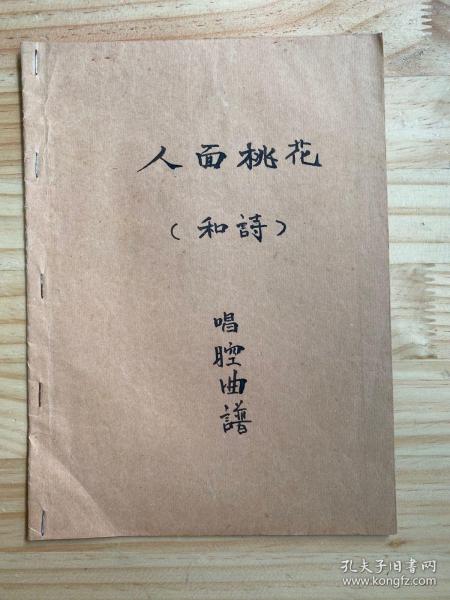 人面桃花
（和詩）
唱腔曲譜
孔夫子旧书网
www.kongfz.com